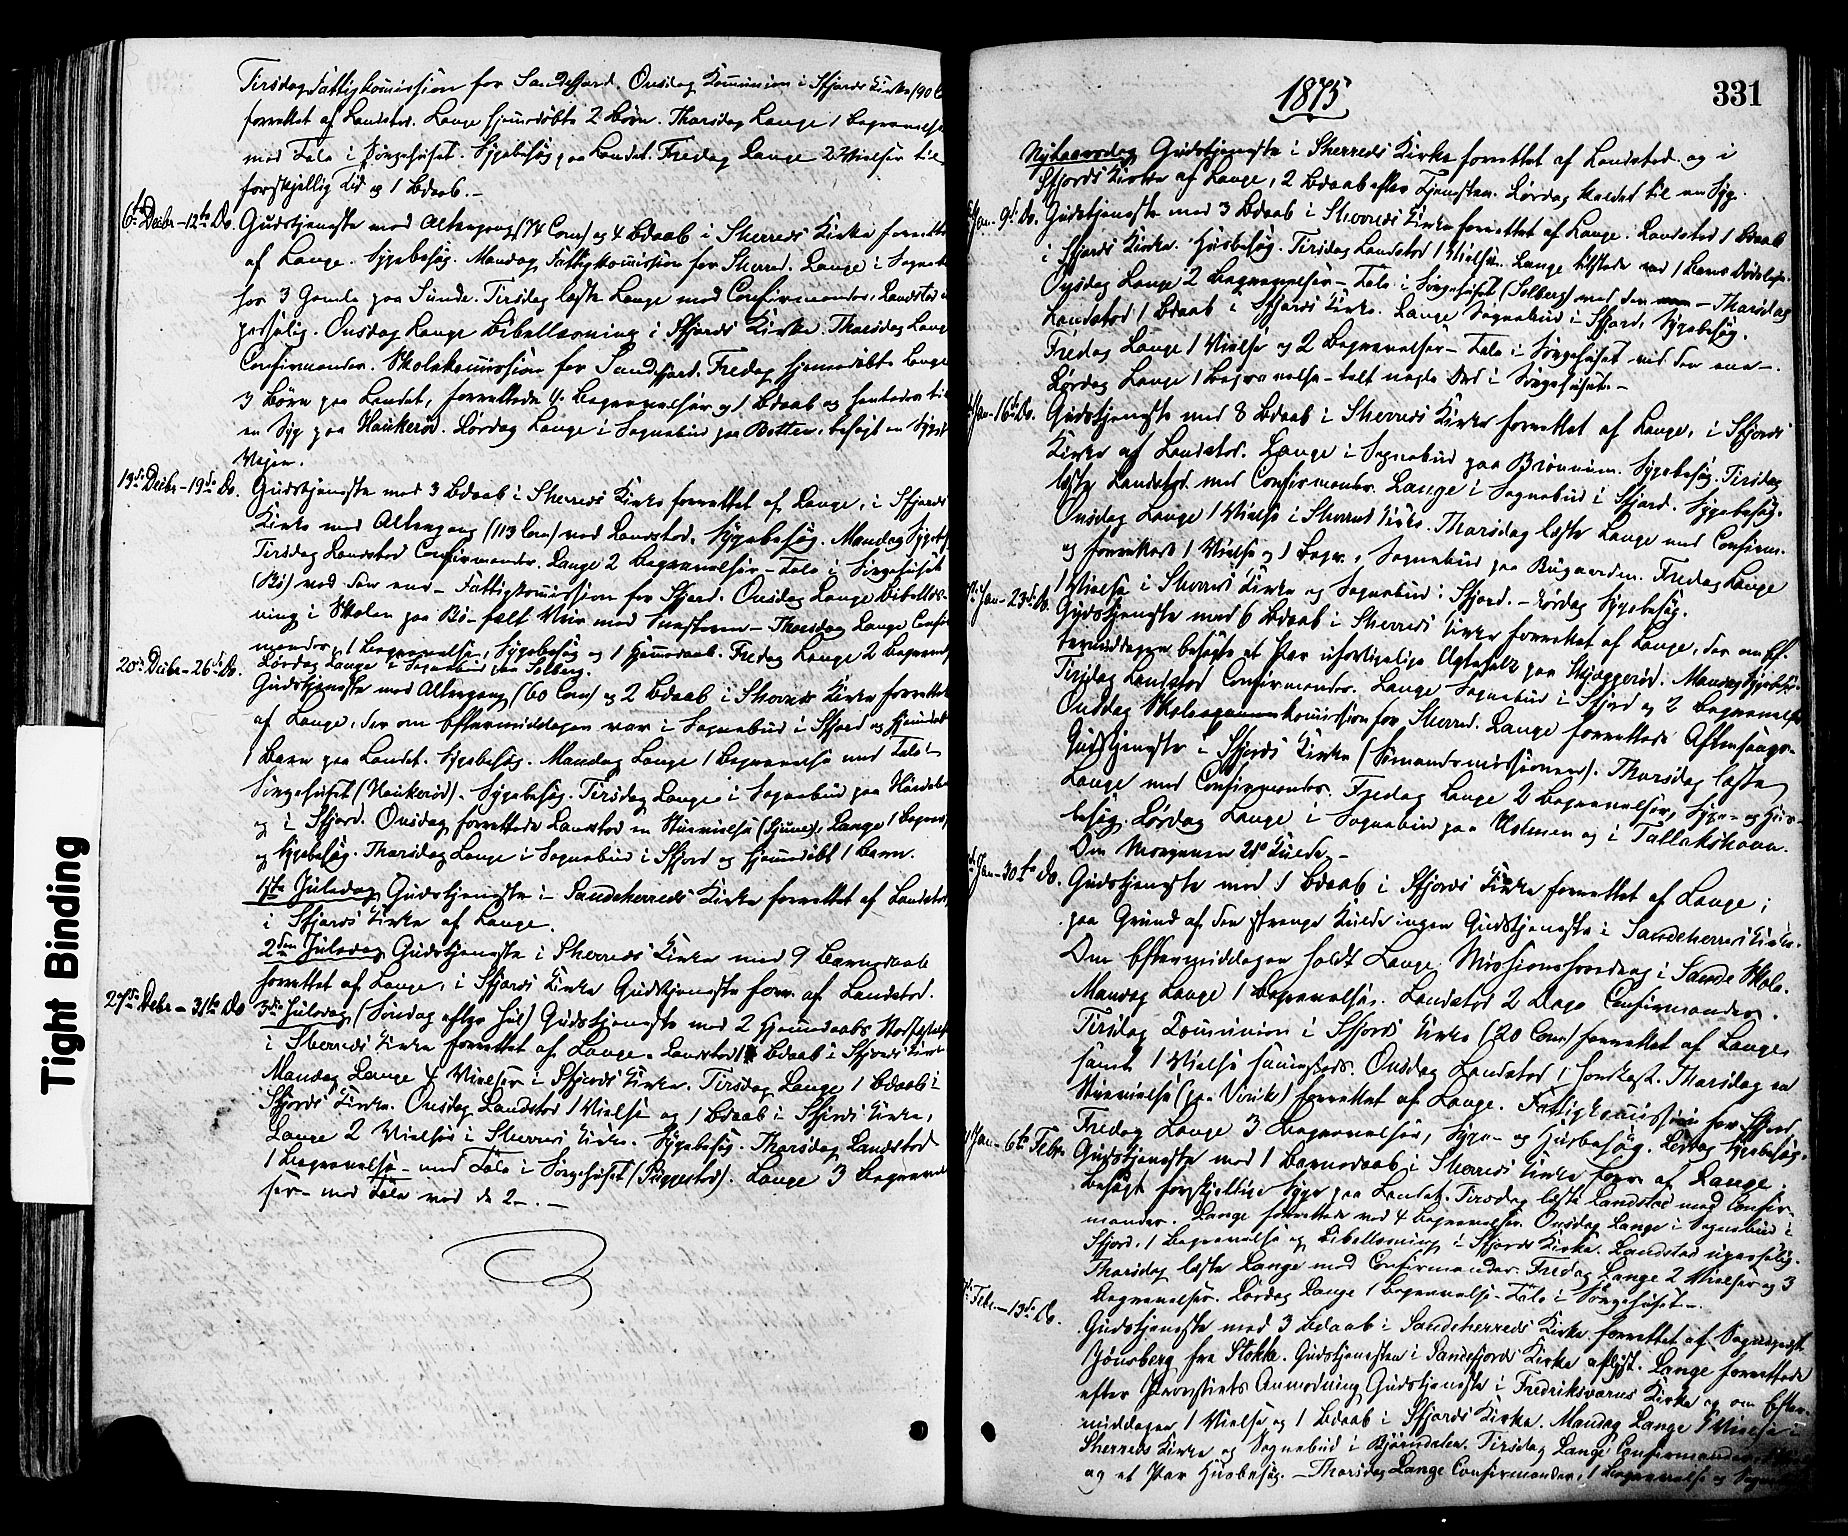 Tirsdag Fattigkomission for Sandefjord. Onsdag Komunion i Sfjords Kirke (90 C
forrettet af Landstad. Lange hjemmedøbte 2 Børn. Thorsdag Lange 1 Begravelse
med Tale i Sørgehuset. Sygebesøg paa Landet. Fredag Lange 2 Vielser til
forskjellig Tid og 1 Bdaab.-
6te Decbr-12te Do. Gudstjeneste med Altergang (74 Com) og 4 Bdaab i Sherreds Kirke forrettet
af Lange. Sygebesøg. Mandag Fattigkomission for Sherred. Lange i Sognebud
for 3 Gamle paa Sunde. Tirsdag læste Lange med Confirmander, Landstad u
passelig. Onsdag Lange Bibellæsning i Sfjords Kirke. Thorsdag Lange
Confirmander. Skolekomission for Sandefjord. Fredag hjemmedøbte Lange
3 Børn paa Landet, forrettede 4 Begravelser og 1 Bdaab og hentedes til
en Syg paa Haukerød. Lørdag Lange i Sognebud paa Botten, besøgt en Syg
Vejen.
13de Decbr-19de Do. Gudstjeneste med 3 Bdaab i Sherreds Kirke forrettet af Lange, i Sfjords
Kirke med Altergang (113 Com) ved Landstad. Sygebesøg. Mandag Sygebs
Tirsdag Landstad Confirmander. Lange 2 Begravelser - Tale i Sørgehuset
(Bø) ved den ene - Fattigkomission for Sfjord. Onsdag Lange Bibellæs-
ning i Skolen paa Bø - fælt Veir med Snestorm - Thorsdag Lange Confir
mander, 1 Begravelse, Sygebesøg og 1 Hjemmedaab. Fredag Lange 2 Begravels
Lørdag Lange i Sognebud paa Solberg.
20de Decbr-26de Do. Gudstjeneste med Altergang (60 Com) og 2 Bdaab i Sherreds Kirke forrettet
af Lange, der om Eftermiddagen var i Sognebud i Sfjord og hjemmedøbt
1 Barn paa Landet. Sygebesøg. Mandag Lange 1 Begravelse med Tale i
Sørgehuset (Haukerød). Sygebesøg. Tirsdag Lange i Sognebud paa
og i Sfjord. Onsdag forrettede Landstad en Huusvielse (Hjem), Lange 1 Begrav
og Sygebesøg. Thorsdag Lange i Sognebud i Sfjord og hjemmedøbt 1 Barn.
1ste Juledag Gudstjeneste i Sandeherreds Kirke forrettet af Landstad,
i Sfjords Kirke af Lange.
2den Juledag Gudstjeneste i Sherreds Kirke med 9 Barnedaab
forrettet af Lange, i Sfjords Kirke Gudstjeneste forr. af Landstad.
27de Decbr-31te Do 3die Juledag (Søndag efter Jul) Gudstjeneste med 2 Hjemmedaabs Stadfæstelse
i Sherreds Kirke forrettet af Lange. Landstad 1 Bdaab i Sfjords Kirke
Mandag Lange 4 Vielser i Sfjords Kirke. Tirsdag Lange 1 Bdaab i
Sfjords Kirke. Onsdag Landstad 1 Vielse og 1 Bdaab i Sfjords Kirke,
Lange 2 Vielser i Sherreds Kirke. Sygebesøg. Thorsdag Landstad
1 Begravelse - med Tale i Sørgehuset. Lange 3 Begravel
ser - med Tale ved de 2 -. -
Tight Binding
331
1875
Nytaarsdag Gudstjeneste i Sherreds Kirke forrettet af Landstad og i
Sfjords Kirke af Lange, 2 Bdaab efter Tjenesten. Lørdag kaldet til en Syg.
Jan-9de Do. Gudstjeneste med 3 Bdaab i Sherreds Kirke forrettet af Lange. Landstad 1 Bdaab
i Sfjords Kirke. Husbesøg. Tirsdag Landstad 1 Vielse. Lange tilstede ved 1 Barns Dødsleje.
Onsdag Lange 2 Begravelser - Tale i Sørgehuset (Solberg) ved den - Thorsdag
Landstad 1 Bdaab i Sfjords Kirke. Lange Sognebud i Sfjord, Sygebesøg.
Fredag Lange 1 Vielse og 2 Begravelser - Tale i Sørgehuset ved den ene -.
Lørdag Lange 1 Begravelse - talt nogle Ord i Sørgehuset. -
Jan-16de Do. Gudstjeneste med 8 Bdaab i Sherreds Kirke forrettet af Lange, i Sfjords
Kirke af Landstad. Lange i Sognebud paa Brønnum. Sygebesøg. Tirsdag
læste Landstad med Confirmander. Lange i Sognebud i Sfjord. Sygebesøg.
Onsdag Lange 1 Vielse i Sherreds Kirke. Thorsdag læste Lange med Confirm.
og forrettede 1 Vielse og 1 Begr., Sognebud paa Bugaarden. Fredag Lange
1 Vielse i Sherreds Kirke og Sognebud i Sfjord. - Lørdag Sygebesøg.
Jan-23de Do. Gudstjeneste med 6 Bdaab i Sherreds Kirke forrettet af Lange, der om Ef-
termiddagen besøgte et Par uforligelige Ægtefolk paa Skjæggerød. Mandag Sygebesøg.
Tirsdag Landstad Confirmander. Lange Sognebud i Sfjord og 2 Begravelser
Onsdag Skolekomission for Sherred. Lange forrettede Aftensangs-
Gudstjeneste i Sfjords Kirke (Sømandsmissionen). Thorsdag læste
Lange med Confirmander. Fredag Lange 2 Begravelser, Syge- og Hus-
besøg. Lørdag Lange i Sognebud paa Holmen og i Tallakshavn.
Om Morgenen 21° Kulde -
Jan-30te Do. Gudstjeneste med 1 Bdaab i Sfjords Kirke forrettet af Lange;
paa Grund af den strenge Kulde ingen Gudstjeneste i Sandeherreds Kirke.
Om Eftermiddagen holdt Lange Missionsforedrag i Sande Skole.
Mandag Lange 1 Begravelse. Landstad 2 Dage Confirmander.
Tirsdag Komunion i Sfjords Kirke (20 Com) forrettet af Lange,
samt 1 Vielse sammesteds. Onsdag Landstad 1 . Thorsdag en
Huusvielse (paa Virik) forrettet af Lange. Fattigkomission for Sfjord.
Fredag Lange 3 Begravelser, Syge- og Husbesøg. Lørdag Sygebesøg.
Jan-6te Febr. Gudstjeneste med 1 Barnedaab i Sherreds Kirke forr. af Lange.
Besøgt forskjellige Syge paa Landet. Tirsdag læste Landstad med Confir-
mander. Lange forrettede ved 4 Begravelser. Onsdag Lange i Sognebud i
Sfjord, 1 Begravelse og Bibellæsning i Sfjords Kirke. Landstad upasselig.
Thorsdag læste Lange med Confirmander. Fredag Lange 2 Vielser og 3
Begravelser. Lørdag Lange 1 Begravelse - Tale i Sørgehuset -.
Febr-13de Do. Gudstjeneste med 3 Bdaab i Sandeherreds Kirke forrettet af Sognepræst
Jønsberg fra Stokke. Gudstjenesten i Sandefjords Kirke aflyst. Lange forrettede
efter Provstiets Anmodning Gudstjeneste i Fredriksværns Kirke og om Efter-
middagen 1 Vielse og 1 Bdaab i Sfjords Kirke. Mandag Lange 1 Vielse i
Sherreds Kirke og Sognebud i Bjørndalen. Tirsdag Lange Confirmander
og et Par Husbesøg. - Thorsdag Lange Confirmander, 1 Begravelse og